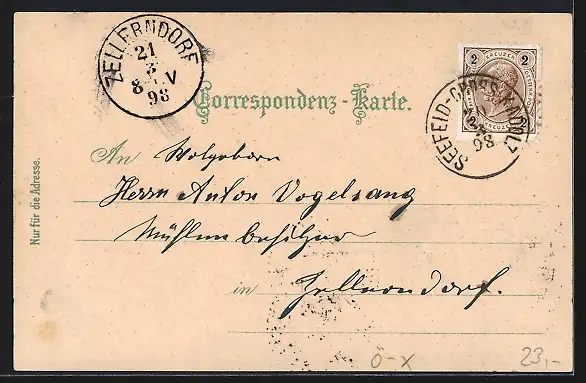 ZELLERNDORF
21
3
8 V
98
2 KREUZER 2
SEEFELD-GROSS KADOLZ
2
98
Correspondenz-Karte.
An Wolgeborn
Herrn Anton Vogelsang
Mühlenbesitzer
in Zellerndorf.
Nur für die Adresse.
Ö-X
23,-